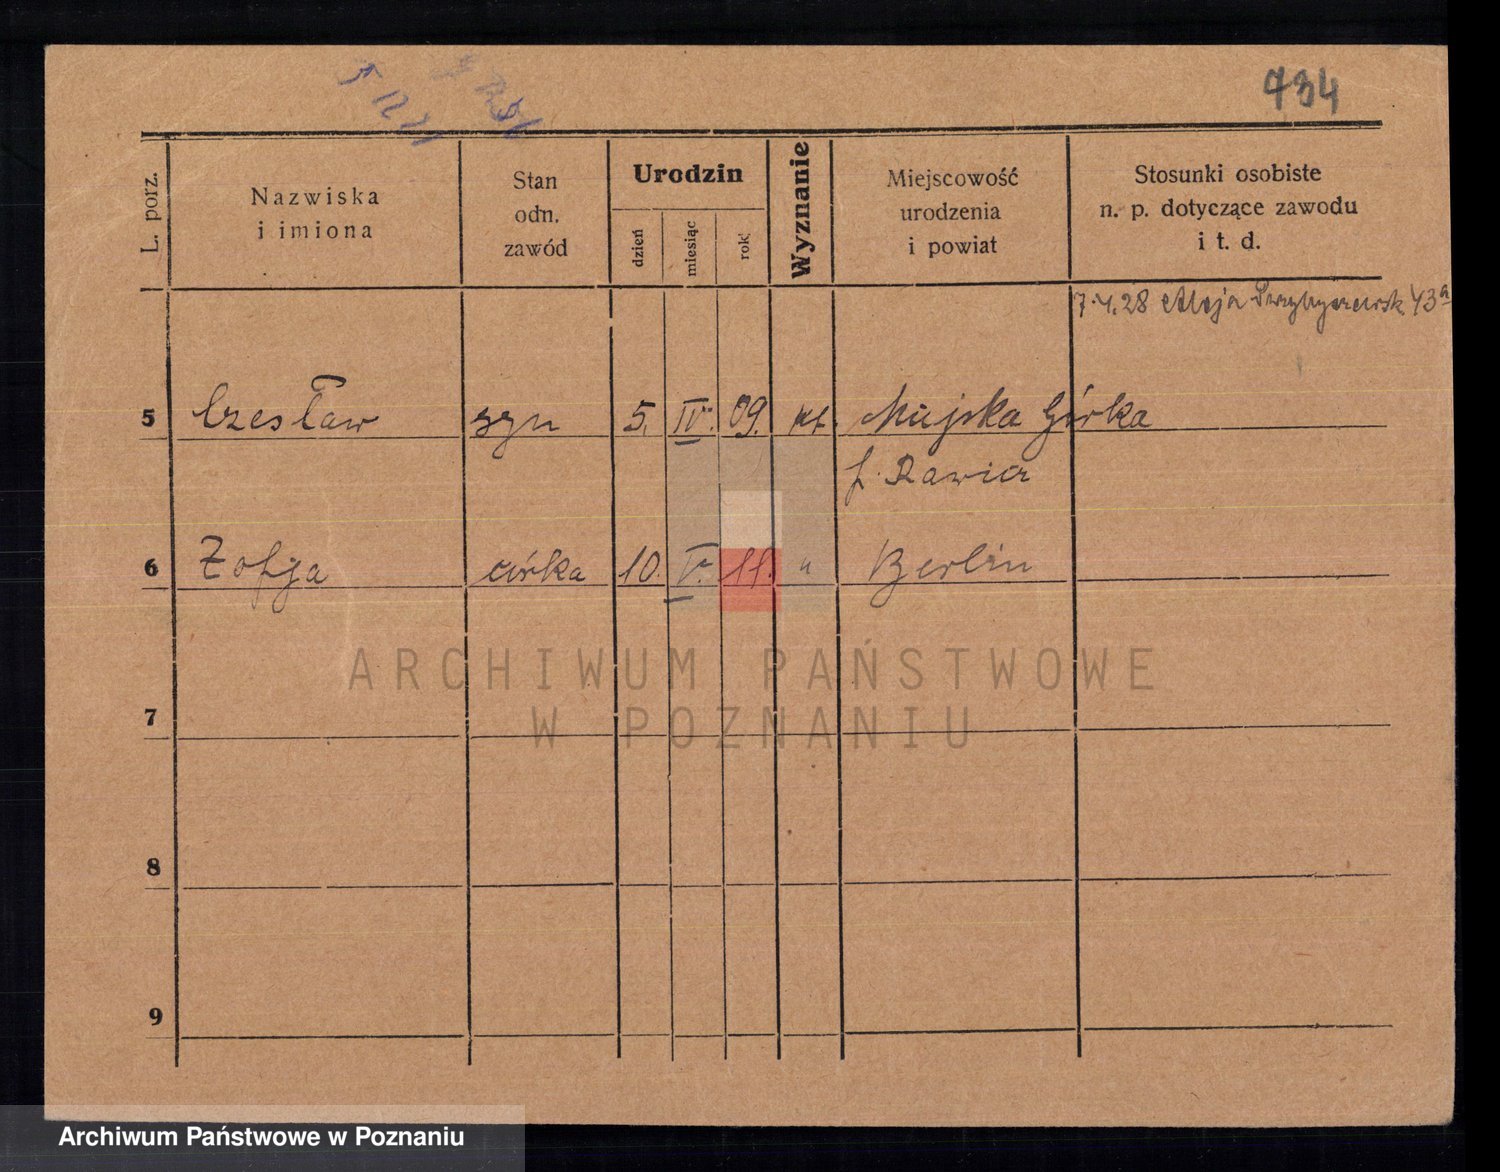 734
L. porz.
Nazwiska
i imiona
Stan
odn.
zawód
Urodzin
dzień
miesiąc
rok
Wyznanie
Miejscowość
urodzenia
i powiat
Stosunki osobiste
n. p. dotyczące zawodu
i t. d.
7.4.28 Aleja Przybyszewsk. 43a
5 Czesław syn 5. IV. 09. kt. Miejska Górka
p. Rawicz
6 Zofja córka 10. V. 11. " Berlin
ARCHIWUM PAŃSTWOWE
W POZNANIU
7
8
9
Archiwum Państwowe w Poznaniu